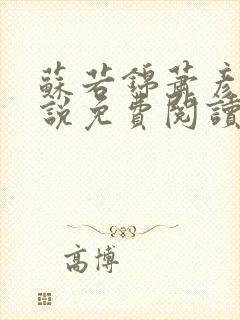 蘇若錦蕭彥
說免費閱讀
高博